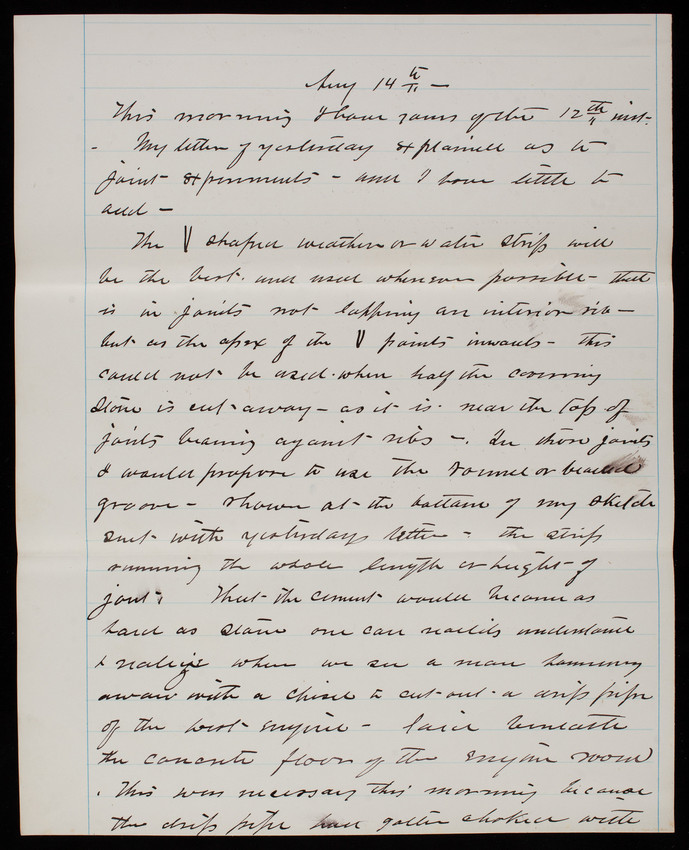 Aug 14th —
This morning I have yours of the 12th inst.
- My letter of yesterday explained as to
joint experiments - and I have little to
add —
The V shaped weather or water strip will
be the best and used whenever possible - that
is in joints not lapping an interior rib —
but as the apex of the V points inwards - this
could not be used when half the covering
stone is cut away - as it is near the top of
joints bearing against ribs -. In those joints
I would propose to use the round or beaded
groove - shown at the bottom of my sketch
sent with yesterdays letter - the strip
running the whole length or height of
joint. That the cement would become as
hard as stone one can readily understand
& realize when we see a man hammering
away with a chisel to cut out a drip pipe
of the west engine - laid beneath
the concrete floor of the engine room
. This was necessary this morning because
the drip pipe had gotten choked with